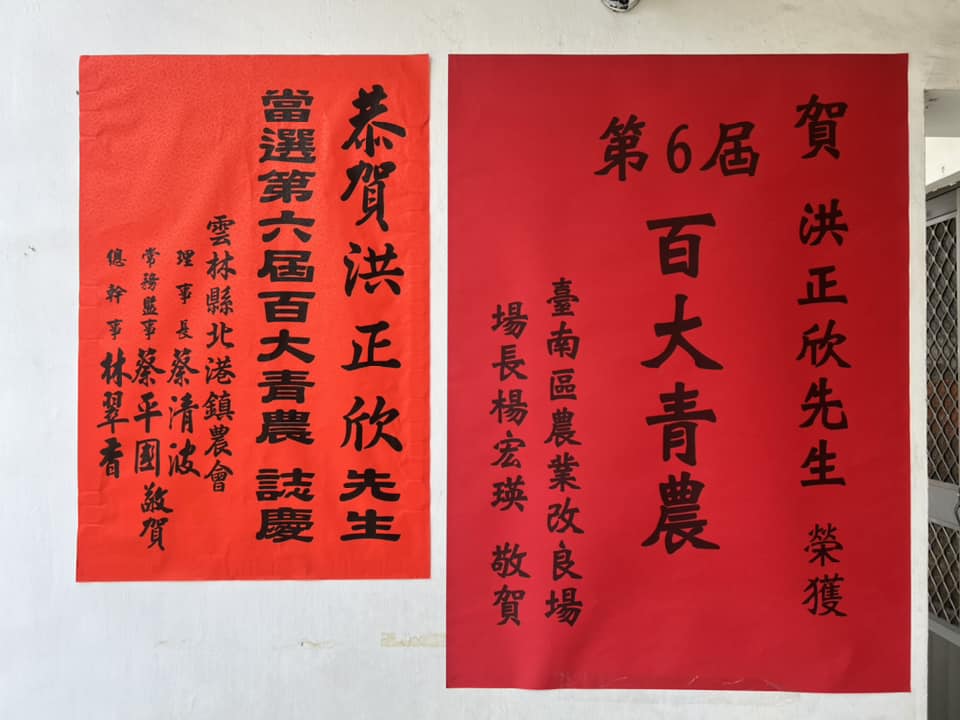 恭賀洪正欣先生
當選第六屆百大青農 誌慶
雲林縣北港鎮農會
理事長 蔡清波
常務監事 蔡平國 敬賀
總幹事 林翠香
賀 洪正欣先生 榮獲
第6屆
百大青農
臺南區農業改良場
場長楊宏瑛 敬賀